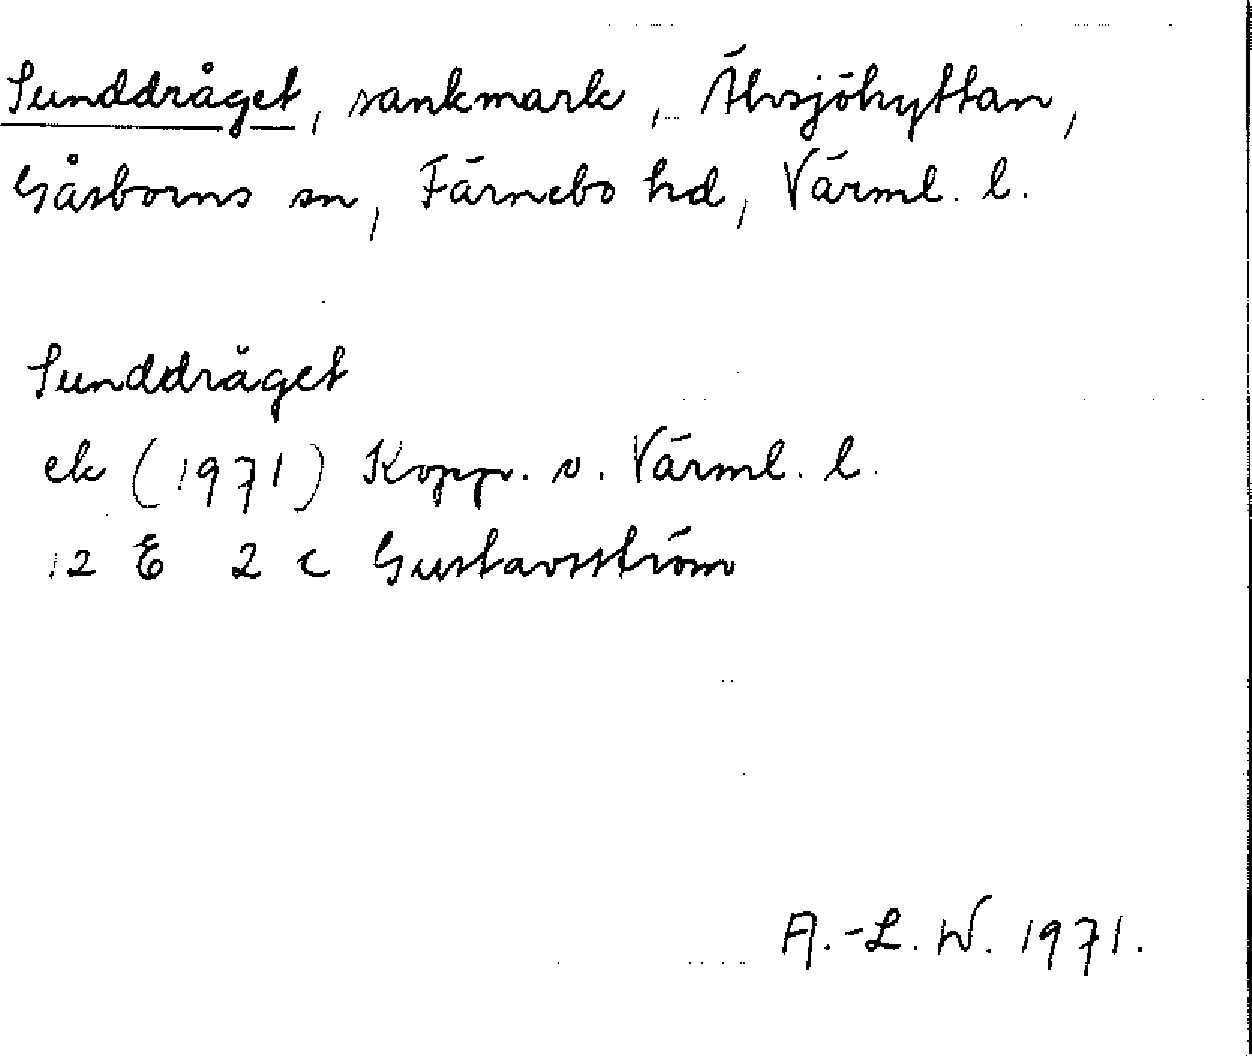 Sunddråget, sankmark, Älvsjöhyttan,
Gåsborns sn, Färnebo hd, Värml. l.
Sunddråget
ek (1971) Kopp. o. Värml. l.
12 E 2 c Gustavsström
A.-L. W. 1971.